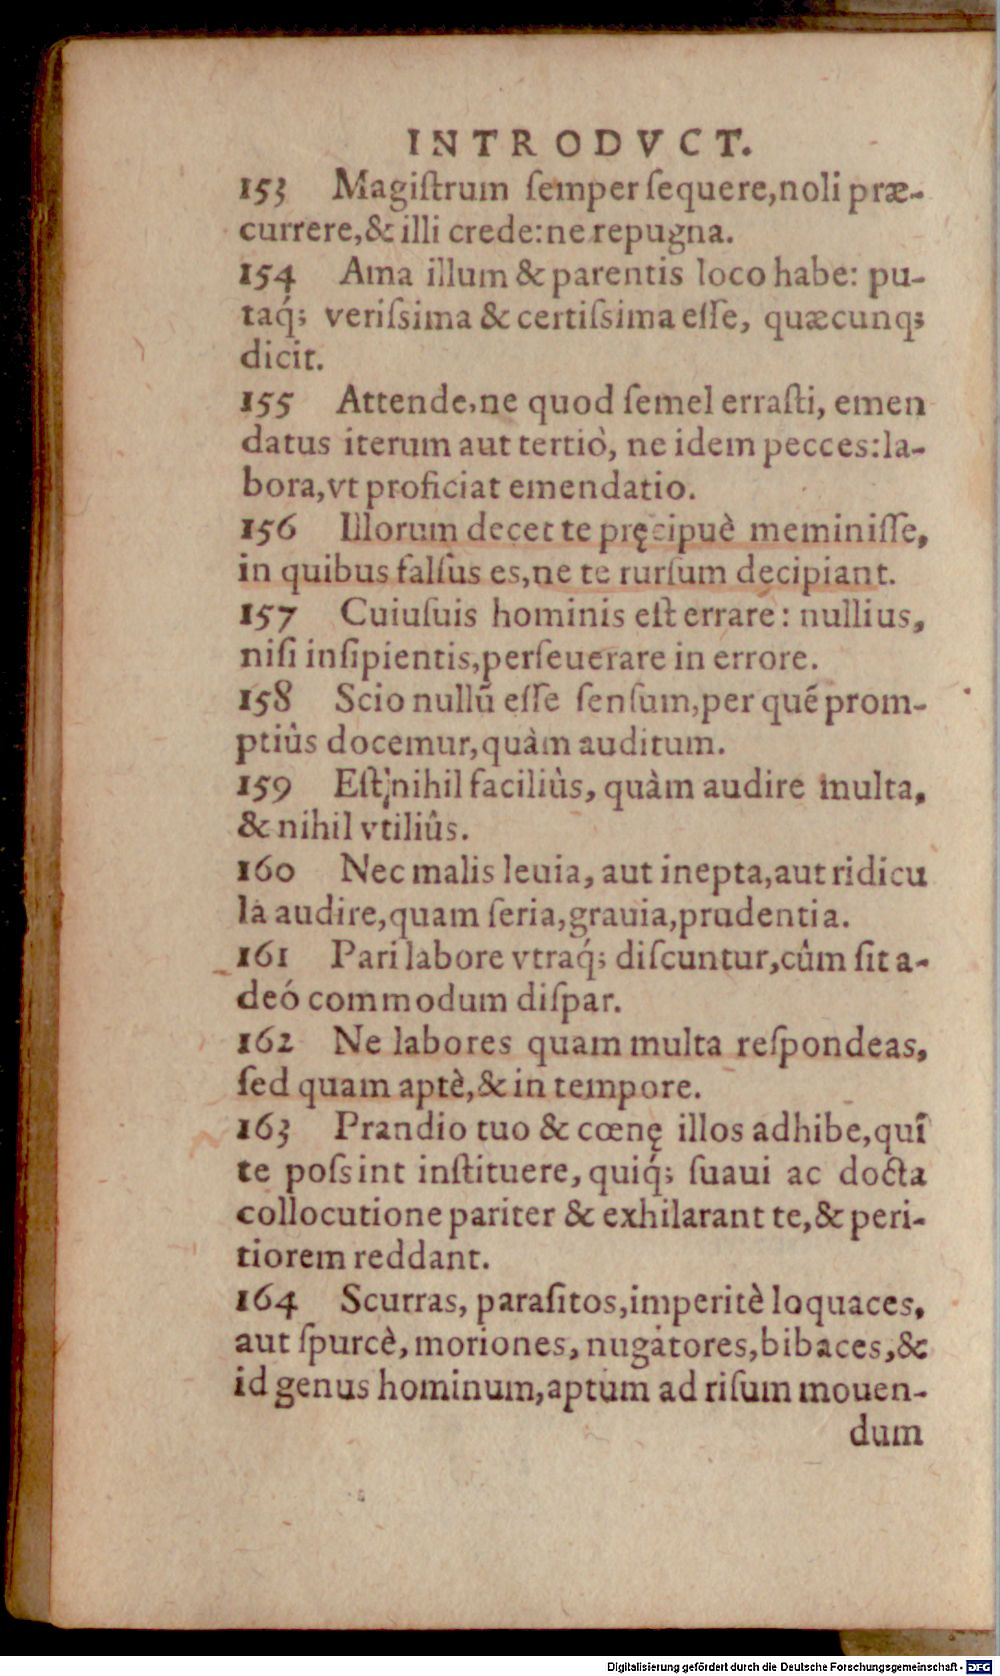 INTRODVCT.
153 Magiſtrum ſemper ſequere,noli præ-
currere,& illi crede:ne repugna.
154 Ama illum & parentis loco habe: pu-
taq́; veriſsima & certiſsima eſſe, quæcunq;
dicit.
155 Attende,ne quod ſemel erraſti, emen
datus iterum aut tertiò, ne idem pecces:la-
bora,vt proficiat emendatio.
156 Illorum decet te pręcipuè meminiſſe,
in quibus falſus es,ne te rurſum decipiant.
157 Cuiuſuis hominis eſt errare: nullius,
niſi inſipientis,perſeuerare in errore.
158 Scio nullū eſſe ſenſum,per quē prom-
ptiûs docemur,quàm auditum.
159 Eſt nihil faciliùs, quàm audire multa,
& nihil vtiliûs.
160 Nec malis leuia, aut inepta,aut ridicu
la audire,quam ſeria,grauia,prudentia.
161 Pari labore vtraq́; diſcuntur,cûm ſit a-
deó commodum diſpar.
162 Ne labores quam multa reſpondeas,
ſed quam aptè,& in tempore.
163 Prandio tuo & cœnę illos adhibe,qui
te poſsint inſtituere, quiq́; ſuaui ac docta
collocutione pariter & exhilarant te,& peri-
tiorem reddant.
164 Scurras, paraſitos,imperitè loquaces,
aut ſpurcè, moriones, nugatores,bibaces,&
id genus hominum,aptum ad riſum mouen-
dum
Digitalisierung gefördert durch die Deutsche Forschungsgemeinschaft - DFG